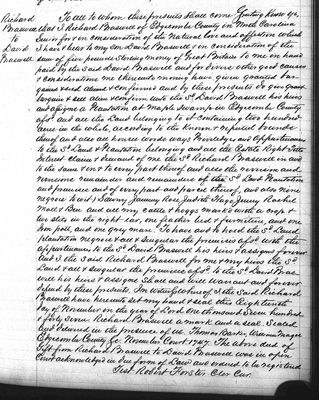 Richard
Braswell
To
David
Braswell
To all to whom these presents shall come Greeting Know ye
that I Richard Braswell of Edgecombe County in North Carolina
for & in consideration of the Natural love and affection which
I have & bear to my Son David Braswell & in consideration of the
sum of five pounds Sterling money of Great Britain to me in hand
paid by the said David Braswell and for divers other good causes
& considerations me thereunto moving have given granted bar-
gained & sold aliened & confirmed and by these presents do give grant
bargain & sell alien & confirm unto the Sd. David Braswell his heirs
and assigns a Plantation at Maple Swamp in Edgecombe County
afsd. and all the Land belonging to it containing two hundred
acres in the whole, according to the known & reputed bounds
thereof and also all houses woods ways Privileges and appurtenances
to the Sd. Land & Plantation belonging and all the Estate Right Title
Interest claim & demand of me the Sd. Richard Braswell in and
to the same & in & to every part thereof and also the revision and
remainder of the Sd. Land Plantation
and premises and of every part and parcel thereof, and also nine
negroes to wit) Sawny Jammy Rose Judith Hago Jenny Rachel
Moll & Ben and all my cattle & hoggs marked with a crop &
two slits in the right ear, one feather bed & furniture, and one
Iron pott, and one gray mare. To have and to hold the Sd. Land
Plantation negroes & all & singular the premises afsd. with the
appurtenances to the Sd. David Braswell his heirs & assigns forever
And I the said Richard Braswell for me & my heirs the Sd.
Land & all & singular the premises afsd. to the Sd. David Bras-
well his heirs & assigns Shall and will warrant and forever
defend by these presents. In witness whereof I the Said Richard
Braswell have hereunto set my hand & seal this Eighteenth
day of November in the year of Lord One thousand Seven hundred
& forty seven. Richard Braswell a mark and a seal. Sealed
and delivered in the presence of us. Thomas Barker,
Edgecombe County Sc. November Court 1747. The above deed of
Gift from Richard Braswell to David Braswell was in open
Court acknowledged in due form of Law and ordered to be registered
Test Robert Forster Cler Cur.